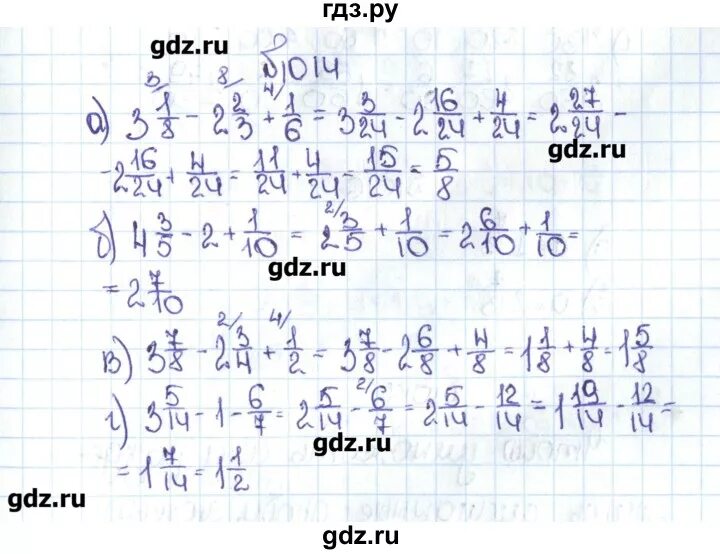 гдз.ру
gdz.ru
№1014
а) 3 1/8 - 2 2/3 + 1/6 = 3 3/24 - 2 16/24 + 4/24 = 2 27/24 -
3/ 8/ 4/
gdz.ru
- 2 16/24 + 4/24 = 11/24 + 4/24 = 15/24 = 5/8
б) 4 3/5 - 2 + 1/10 = 2 3/5 + 1/10 = 2 6/10 + 1/10 =
2/
gdz.ru
= 2 7/10
в) 3 7/8 - 2 3/4 + 1/2 = 3 7/8 - 2 6/8 + 4/8 = 1 1/8 + 4/8 = 1 5/8
2/ 4/
г) 3 5/14 - 1 - 6/7 = 2 5/14 - 6/7 = 2 5/14 - 12/14 = 1 19/14 - 12/14 =
2/
gdz.ru
= 1 7/14 = 1 1/2
gdz.ru
gdz.ru